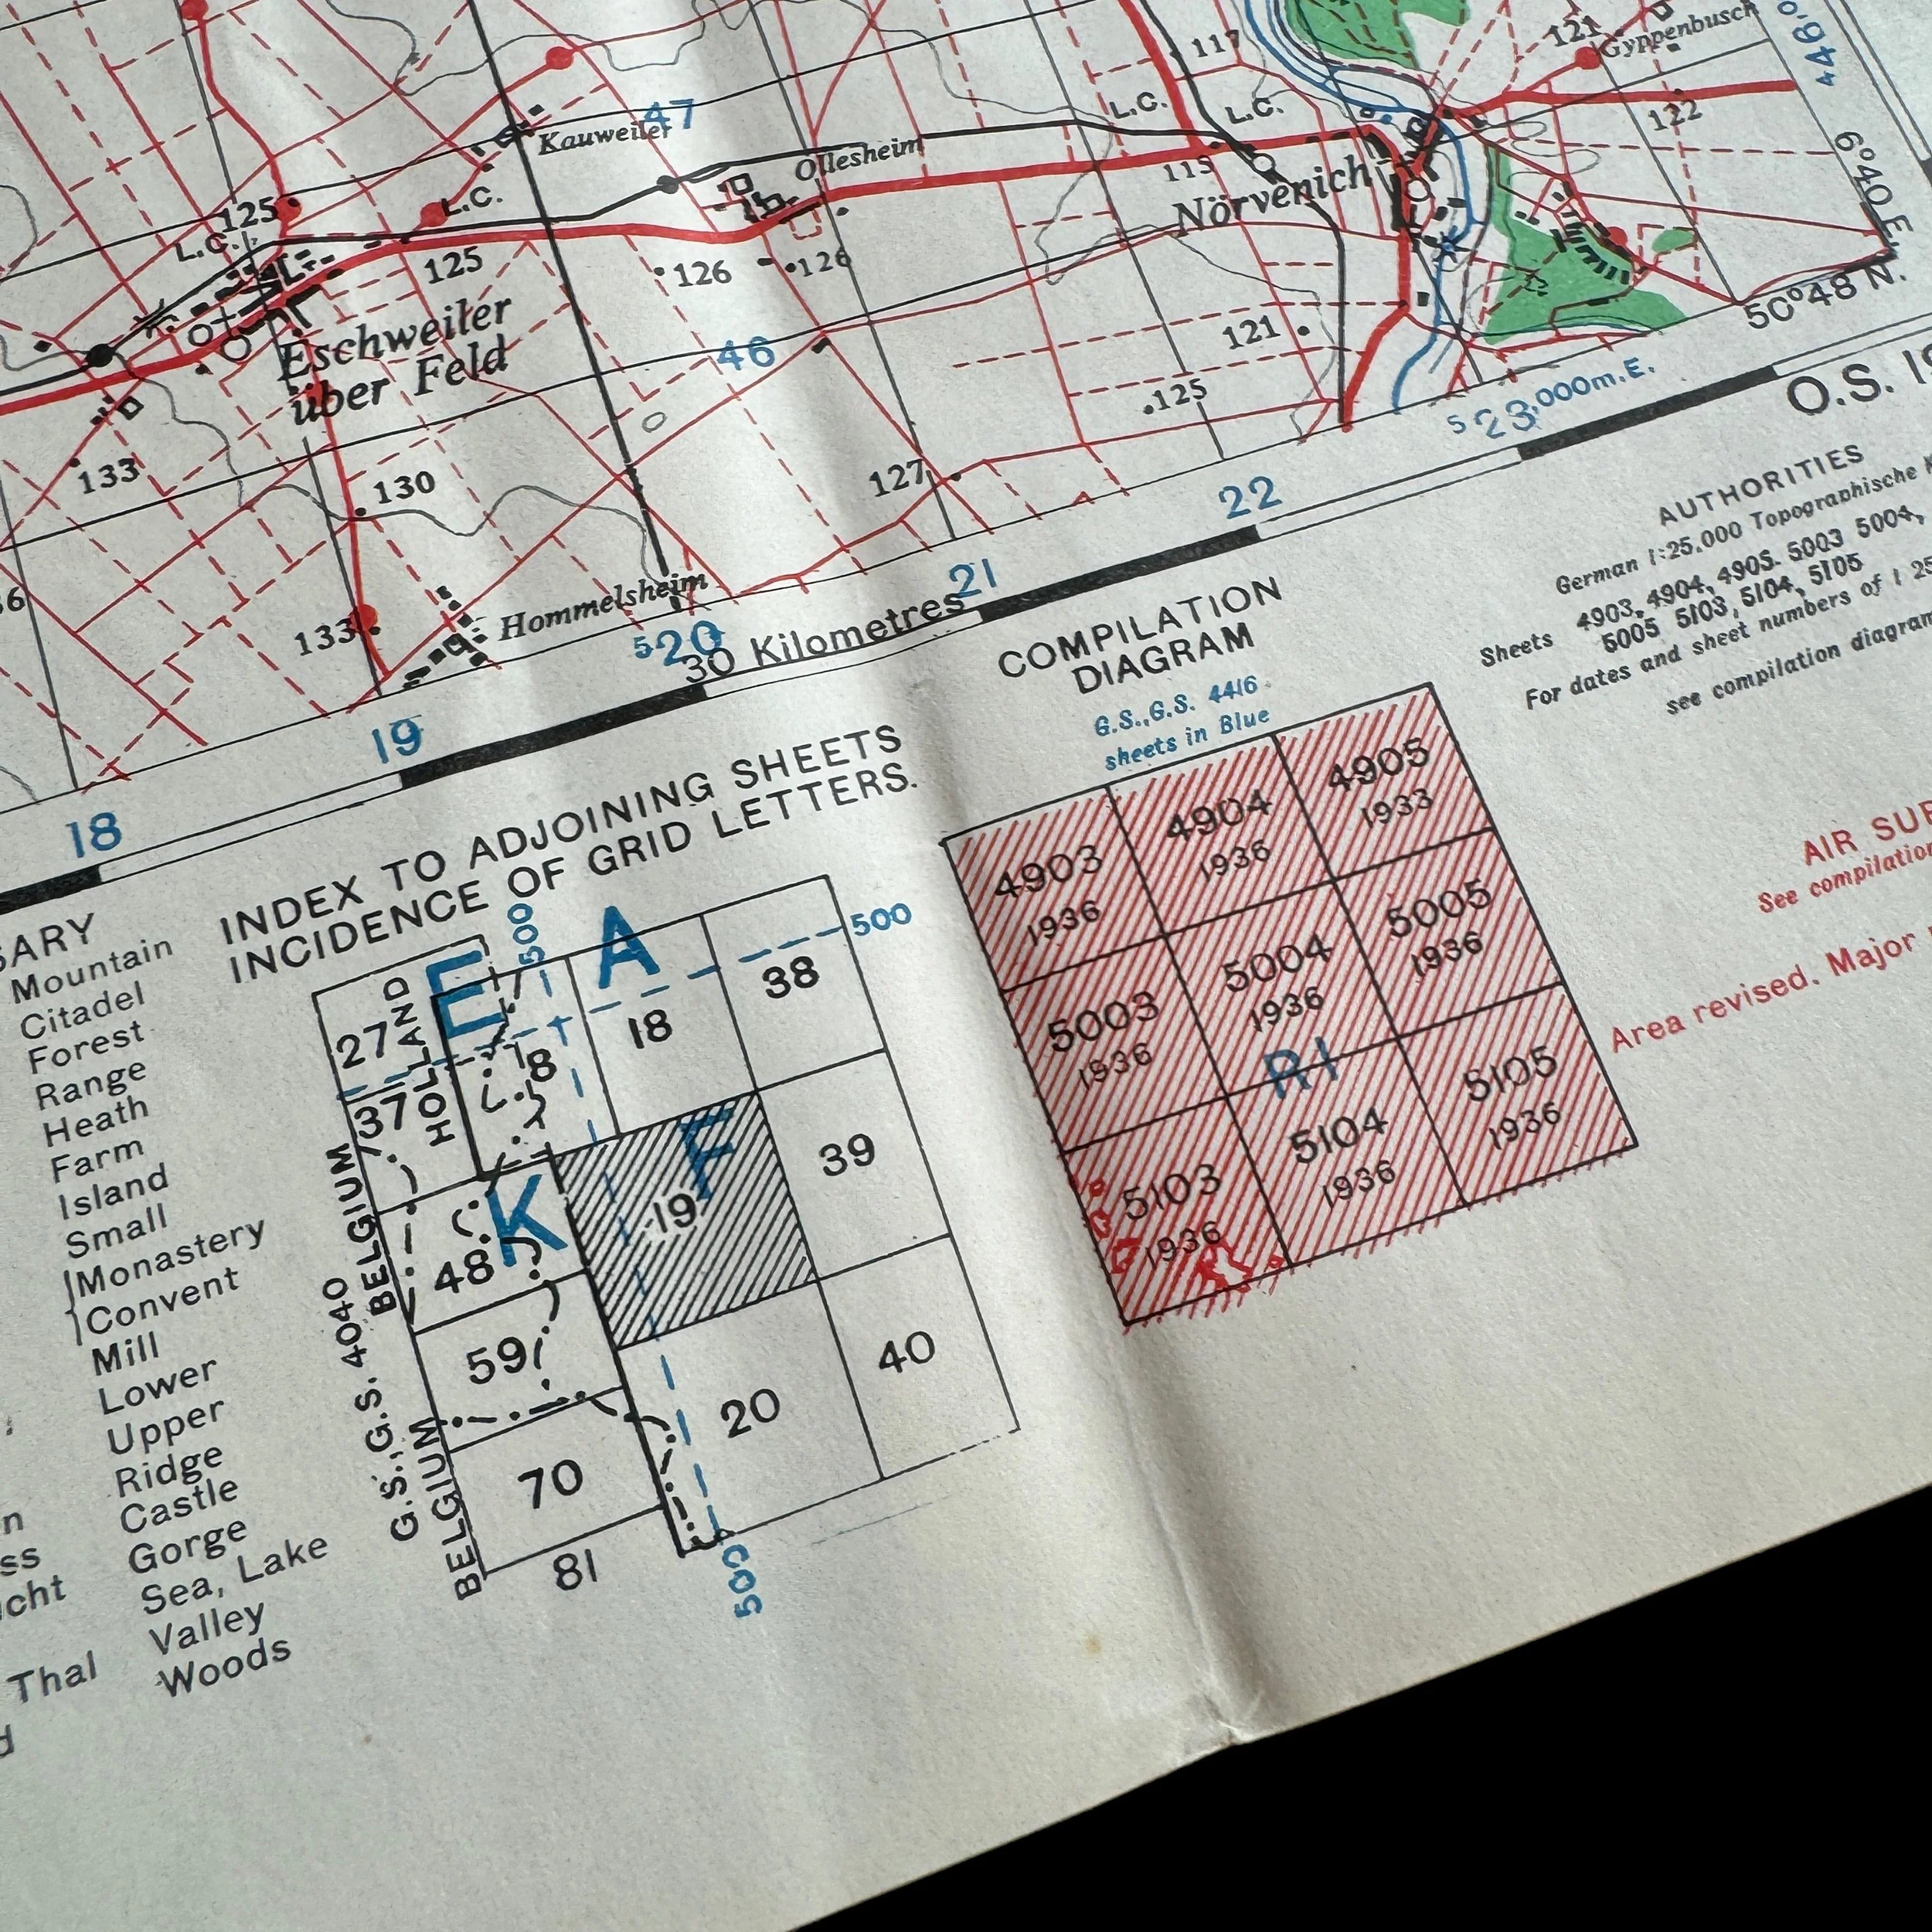 117
121
Gyppenbusch
47
Kauweiler
L.C.
L.C.
122
Ollesheim
115
Nörvenich
6°40 E.
125
L.C.
L.C.
125
126
126
50°48' N.
Eschweiler
über Feld
46
121
125
133
130
127
133
Hommelsheim
18
19
520
30 Kilometres
21
22
523,000m.E.
O.S.
AUTHORITIES
German 1:25,000 Topographische
Sheets 4903, 4904, 4905. 5003 5004,
5005 5103, 5104, 5105
For dates and sheet numbers of
see compilation diagram
COMPILATION
DIAGRAM
G.S.,G.S. 4416
sheets in Blue
4903
1936
4904
1936
4905
1933
5003
1936
5004
1936
5005
1936
R1
5103
1936
5104
1936
5105
1936
AIR
See compilation
Area revised. Major
INDEX TO ADJOINING SHEETS
INCIDENCE OF GRID LETTERS.
500
500
E
A
27
HOLLAND
8
18
38
37
K
F
19
39
48
59
20
40
70
81
500
BELGIUM
G.S.,G.S. 4040
BELGIUM
Mountain
Citadel
Forest
Range
Heath
Farm
Island
Small
Monastery
Convent
Mill
Lower
Upper
Ridge
Castle
Gorge
Sea, Lake
Thal Valley
Woods